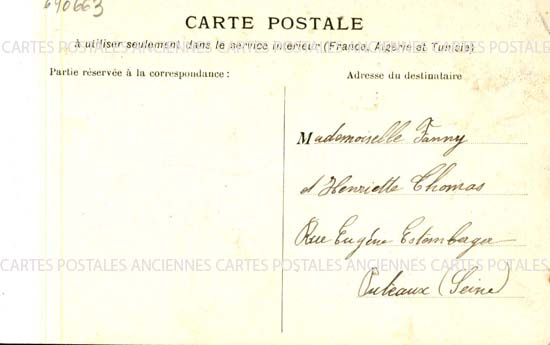 640663
CARTE POSTALE
à utiliser seulement dans le service intérieur (France, Algérie et Tunisie)
CARTES POSTALES ANCIENNES CARTES POSTALES ANCIENNES CARTES POSTALES
Partie réservée à la correspondance :
Adresse du destinataire
Mademoiselle Fanny
et Henriette Thomas
Rue Eugène Estemberger
CARTES POSTALES ANCIENNES CARTES POSTALES ANCIENNES CARTES POSTALES
Puteaux (Seine)